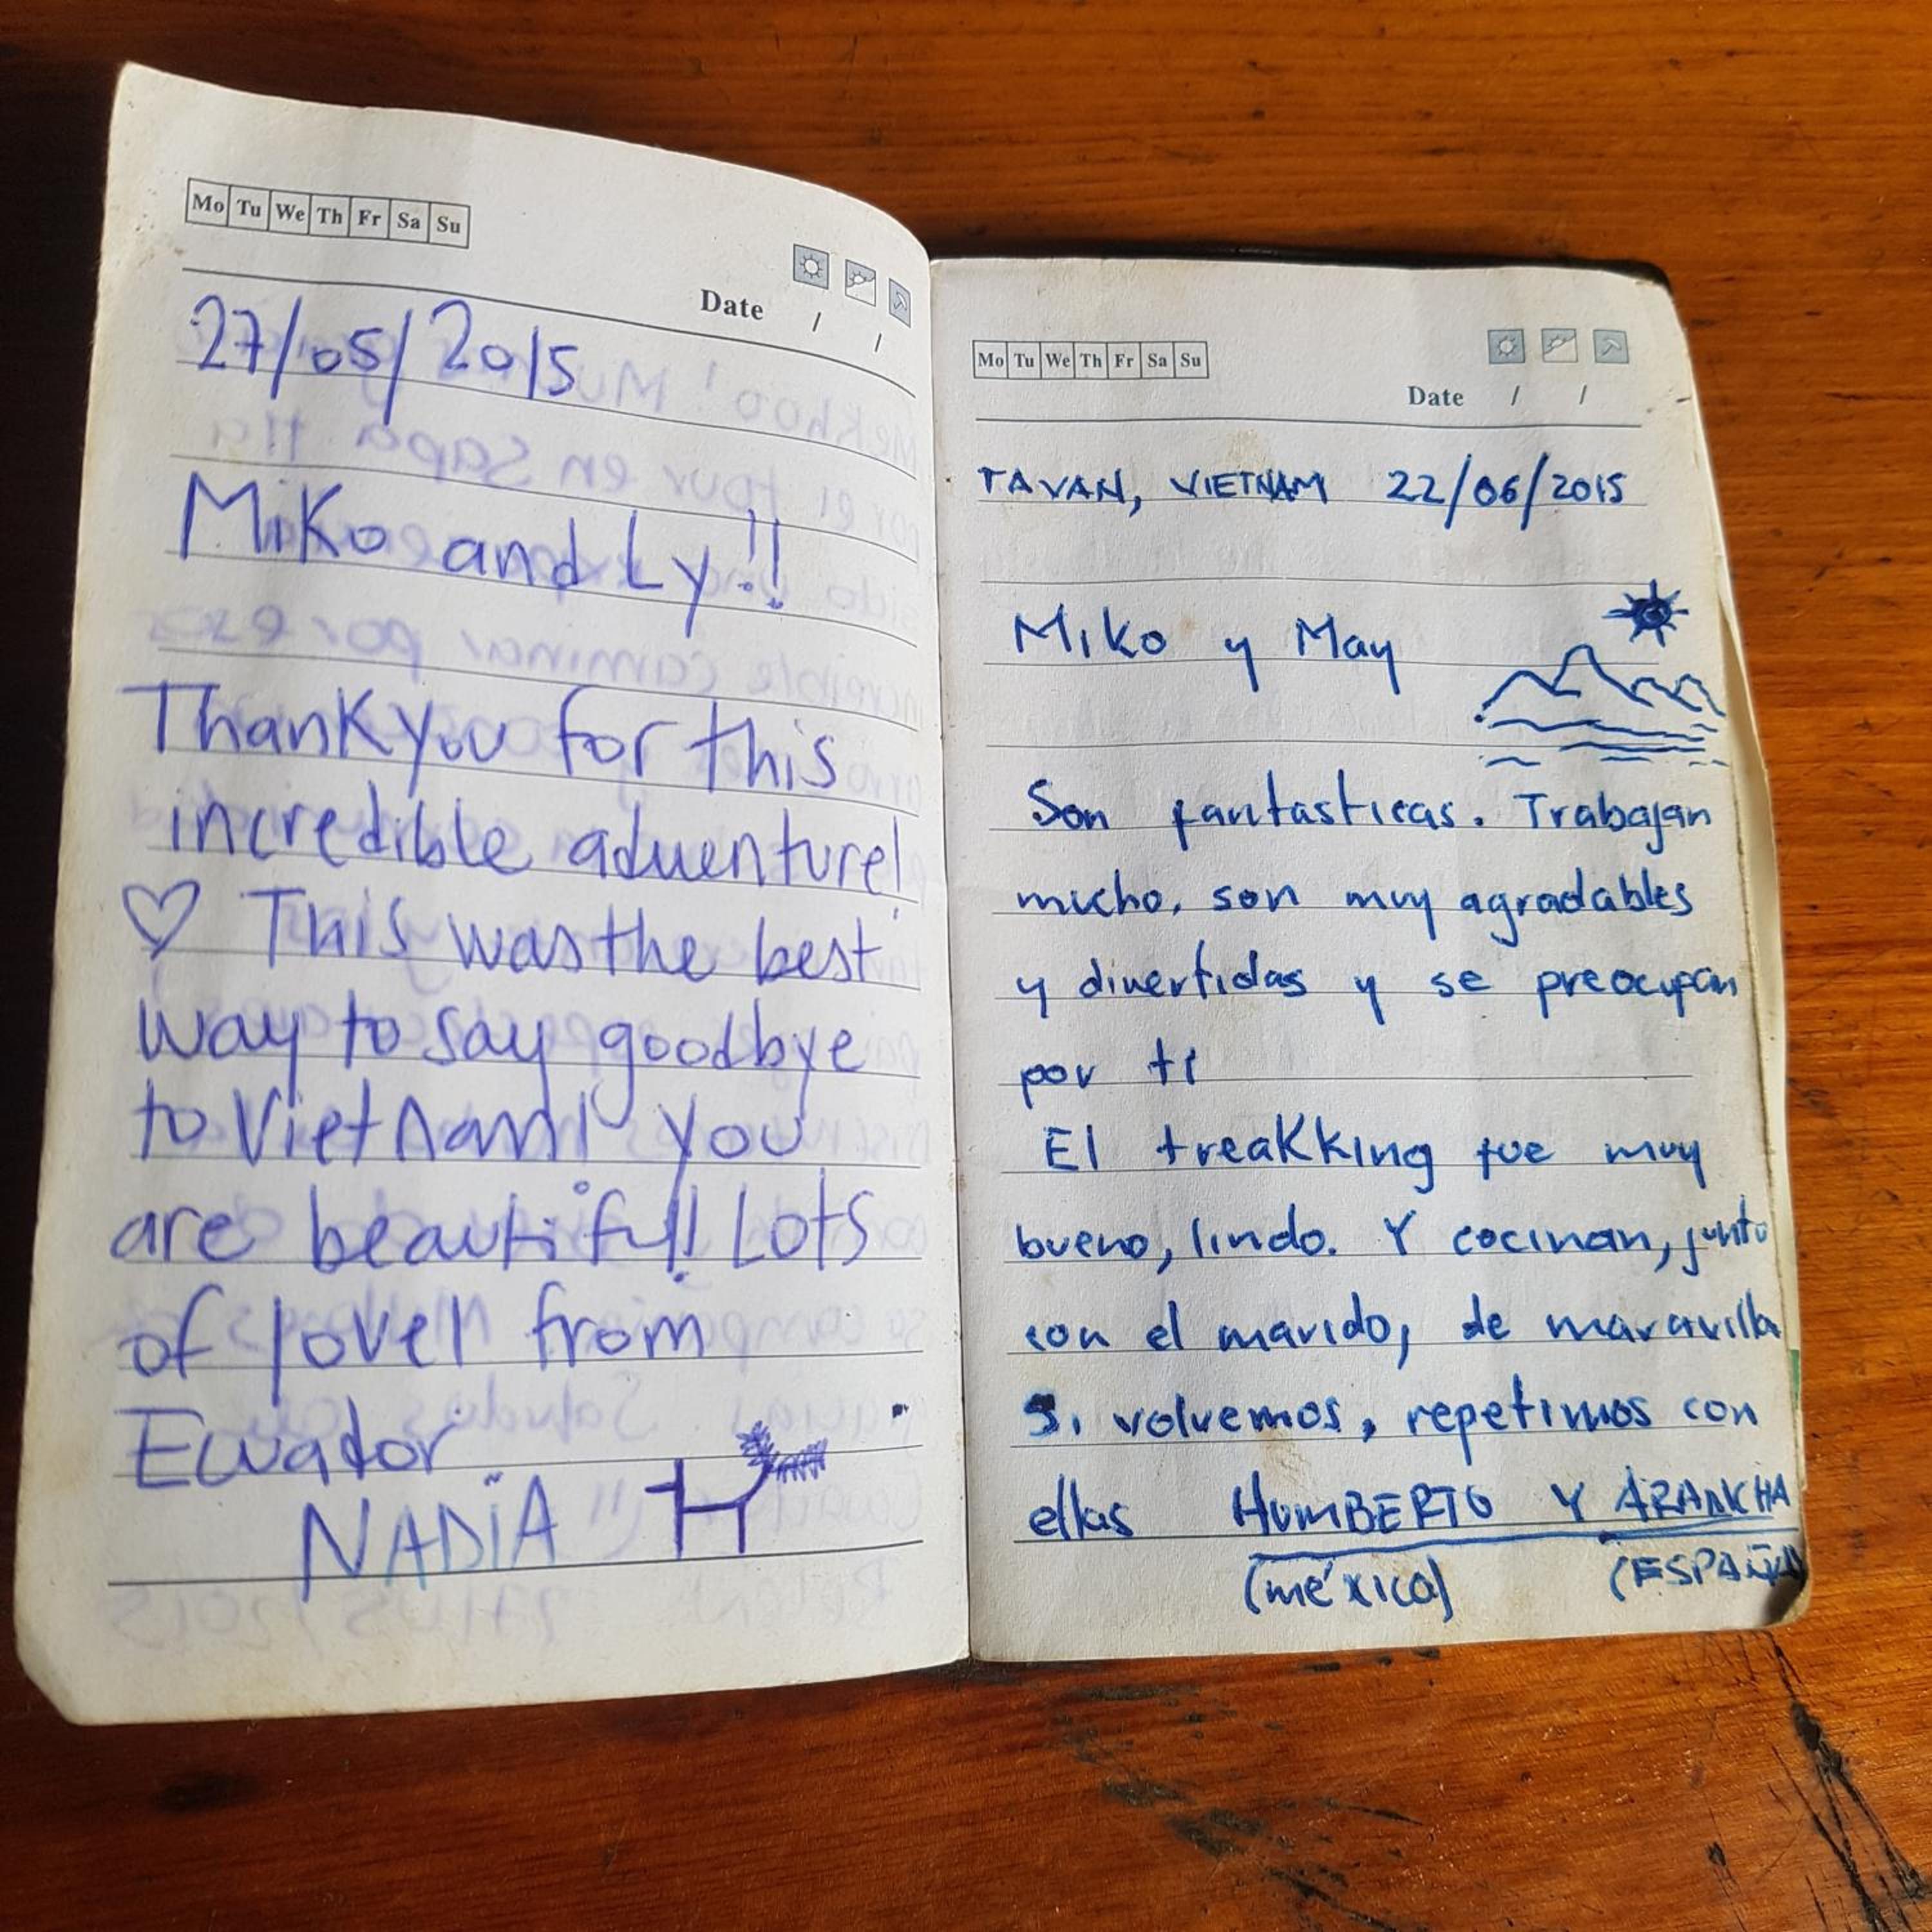 Mo Tu We Th Fr Sa Su
Date / /
27/05/2015
Miko and Ly!!
Thank you for this
incredible adventure!
♡ This was the best
way to say goodbye
to Vietnam! you
are beautiful! Lots
of love!! from
Ecuador
NADIA
Mo Tu We Th Fr Sa Su
Date / /
TAVAN, VIETNAM 22/06/2015
Miko y May
Son fantasticas. Trabajan
mucho, son muy agradables
y divertidas y se preocupan
por ti
El treakking fue muy
bueno, lindo. Y cocinan, junto
con el marido, de maravilla
Si volvemos, repetimos con
ellas HUMBERTO Y ARANKHA
(méxico) (ESPAÑA)